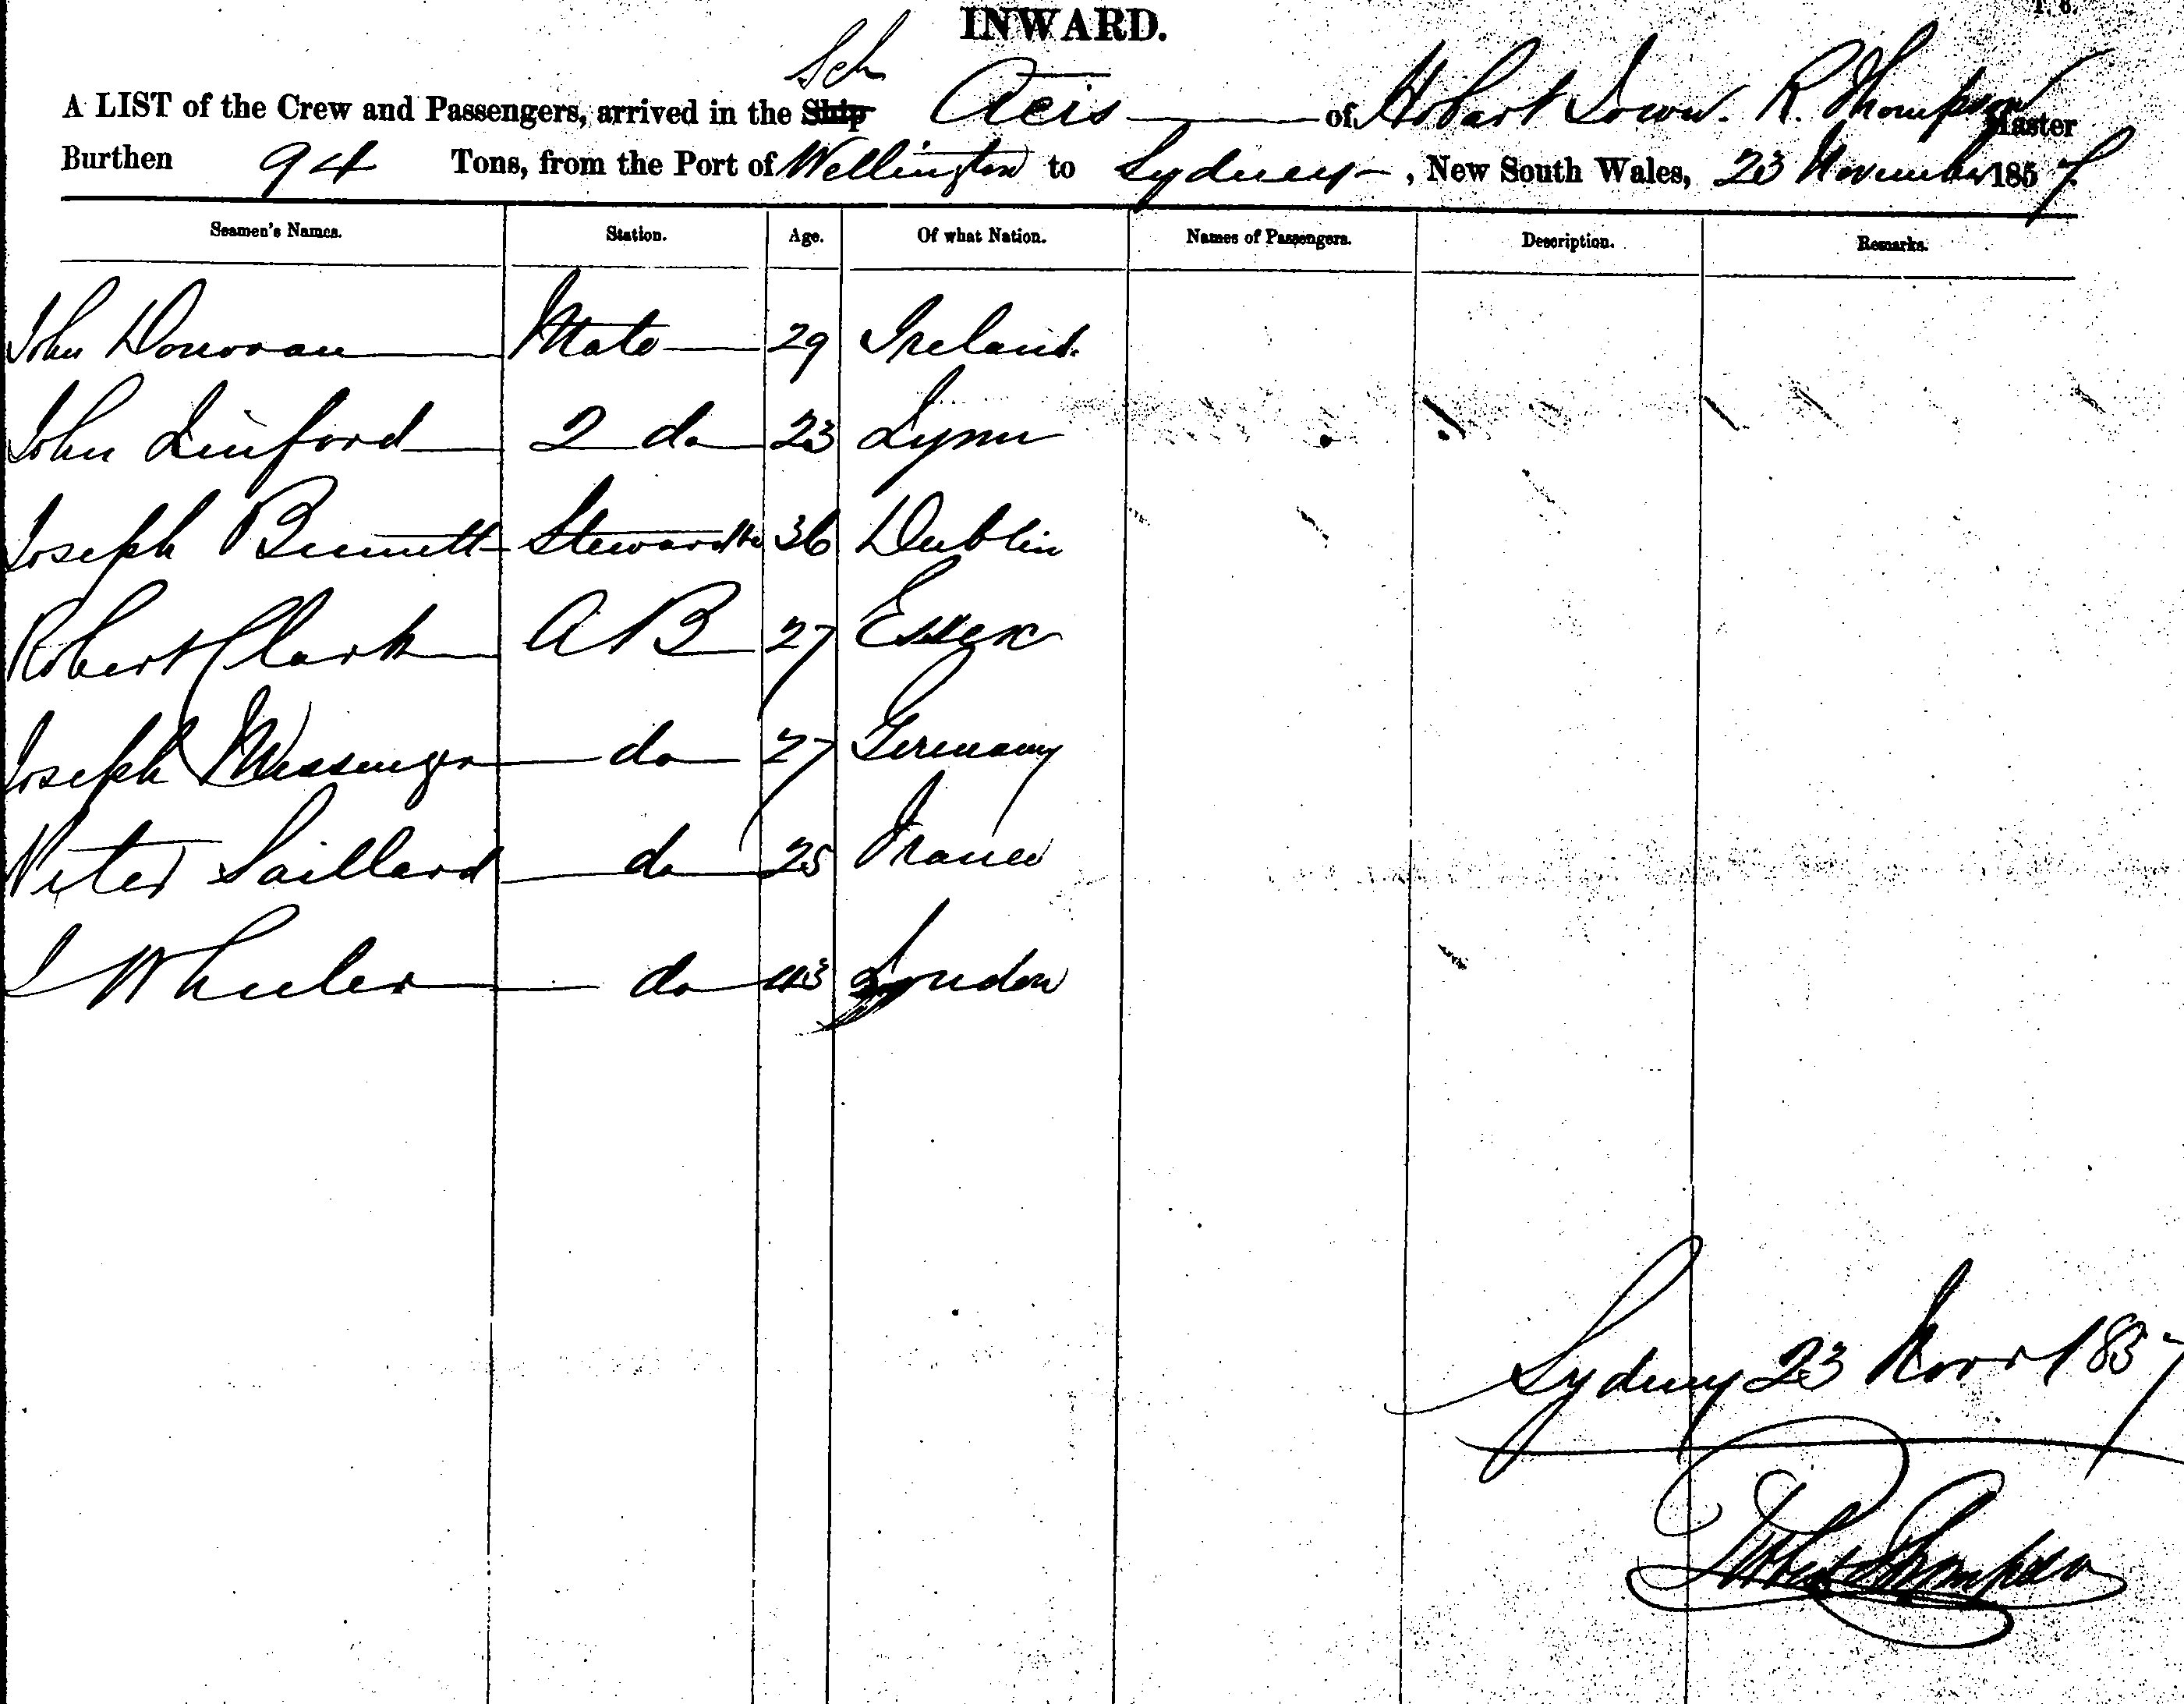 INWARD.
Sch
A LIST of the Crew and Passengers, arrived in the Ship Acis of Hobart Town. R. Thompson Master
Burthen 94 Tons, from the Port of Wellington to Sydney, New South Wales, 23 November 1857
Seamen's Names. Station. Age. Of what Nation. Names of Passengers. Description. Remarks.
John Donovan Mate 29 Ireland.
John Linford 2 do 23 Lynn
Joseph Bennett Steward 36 Dublin
Robert Clark A B 27 Essex
Joseph Messenger do 27 Germany
Peter Saillard do 25 France
Wheeler do 43 London
Sydney 23 Novr 1857
Robert Thompson